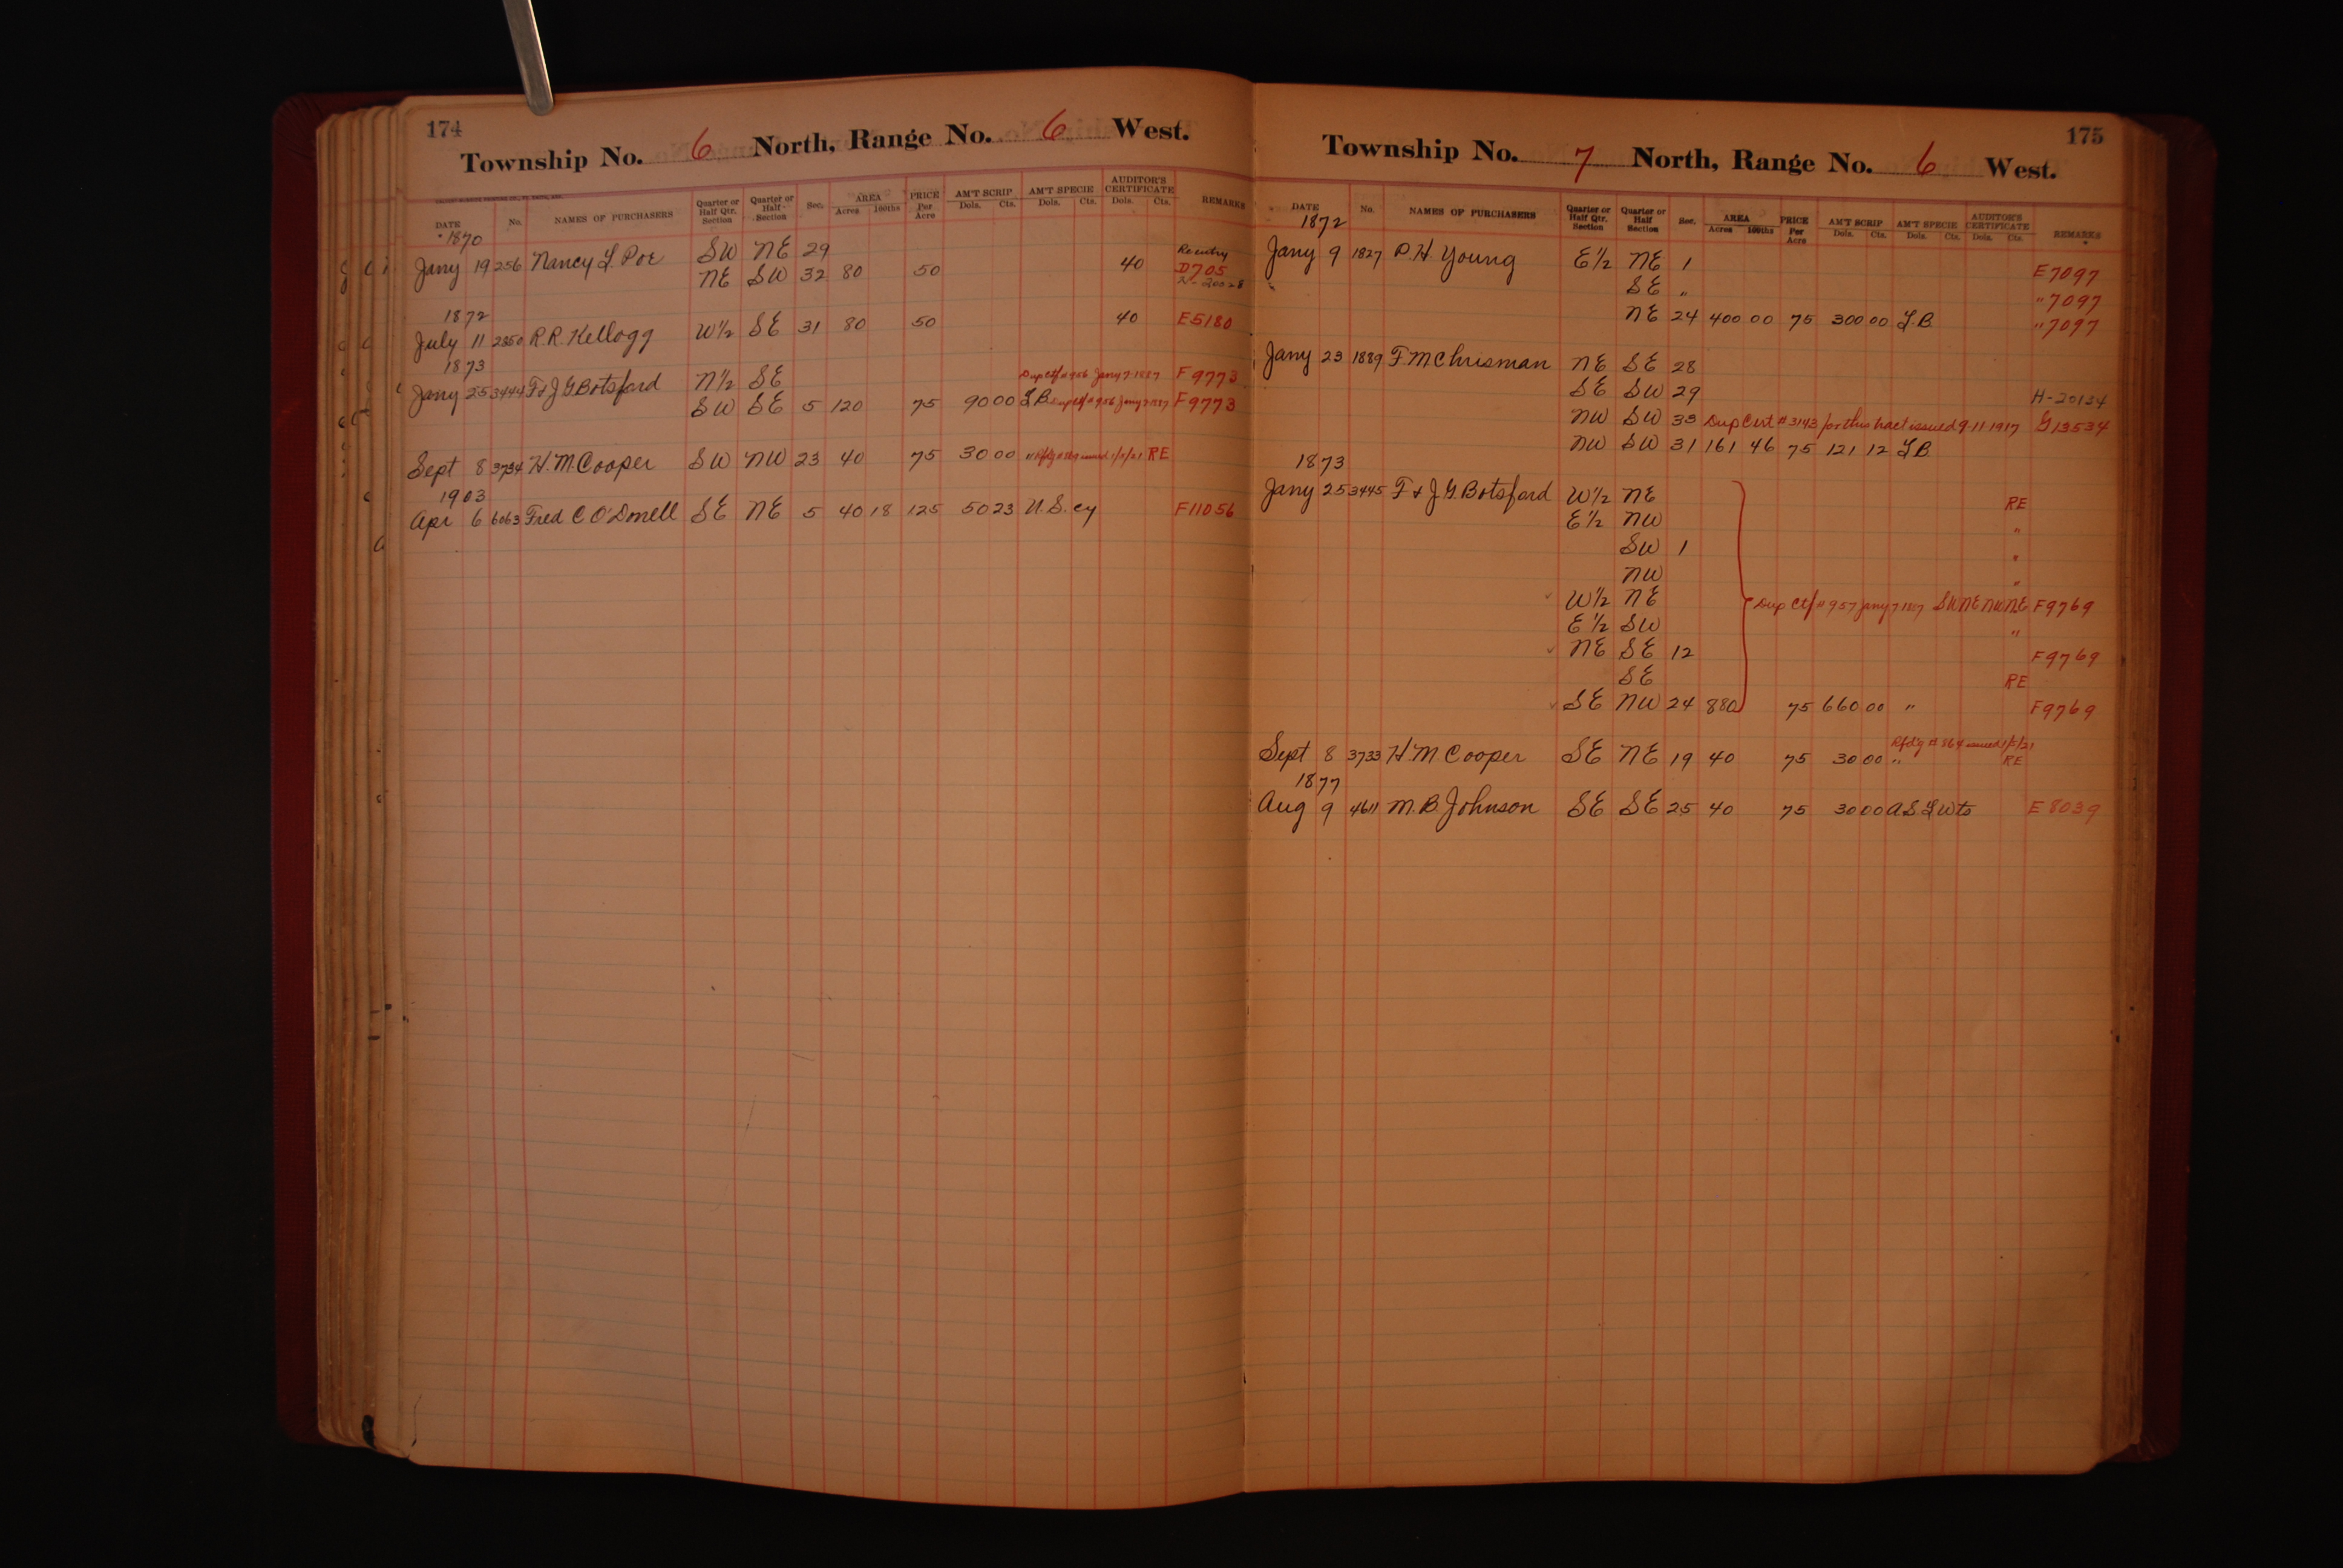 174
Township No. 6 North, Range No. 6 West.
DATE No. NAMES OF PURCHASERS Quarter or Half Qtr. Section Quarter or Half Section Sec. AREA Acres 100ths PRICE Per Acre AM'T SCRIP Dols. Cts. AM'T SPECIE Dols. Cts. AUDITOR'S CERTIFICATE Dols. Cts. REMARKS
1870
Jany 19 256 Nancy L. Poe SW NE 29 Reentry
NE SW 32 80 50 40 D705
1872
July 11 2350 R.R. Kellogg W½ SE 31 80 50 40 E5180
1873
Jany 25 3444 F & J G Botsford N½ SE Dup Ctf # 956 Jany 7-1887 F9773
SW SE 5 120 75 90 00 L.B. Dup Ctf # 956 Jany 7-1887 F9773
Sept 8 3734 H. M. Cooper SW NW 23 40 75 30 00 " Rfdg issued 1/5/21 RE
1903
Apr 6 6063 Fred C O'Donell SE NE 5 40 18 125 50 23 U.S. cy F11056
175
Township No. 7 North, Range No. 6 West.
DATE No. NAMES OF PURCHASERS Quarter or Half Qtr. Section Quarter or Half Section Sec. AREA Acres 100ths PRICE Per Acre AM'T SCRIP Dols. Cts. AM'T SPECIE Dols. Cts. AUDITOR'S CERTIFICATE Dols. Cts. REMARKS
1872
Jany 9 1827 P. H. Young E½ NE 1 E7097
SE " " 7097
NE 24 400 00 75 300 00 L.B. " 7097
Jany 23 1889 F. M Chrisman NE SE 28
SE SW 29 H-20134
NW SW 33 Dup Cert # 3143 for this tract issued 9-11-1917 G13534
NW SW 31 161 46 75 121 12 L B
1873
Jany 25 3445 F & J. G. Botsford W½ NE RE
E½ NW "
SW 1 "
NW "
W½ NE Dup Ctf # 957 Jany 7-1887 SWNE NWNE F9769
E½ SW "
NE SE 12 F9769
SE RE
SE NW 24 880 75 660 00 " F9769
Rfdg # 864 issued 1/5/21
Sept 8 3733 H. M Cooper SE NE 19 40 75 30 00 " RE
1877
Aug 9 4611 M. B. Johnson SE SE 25 40 75 30 00 A S L Wts E8039